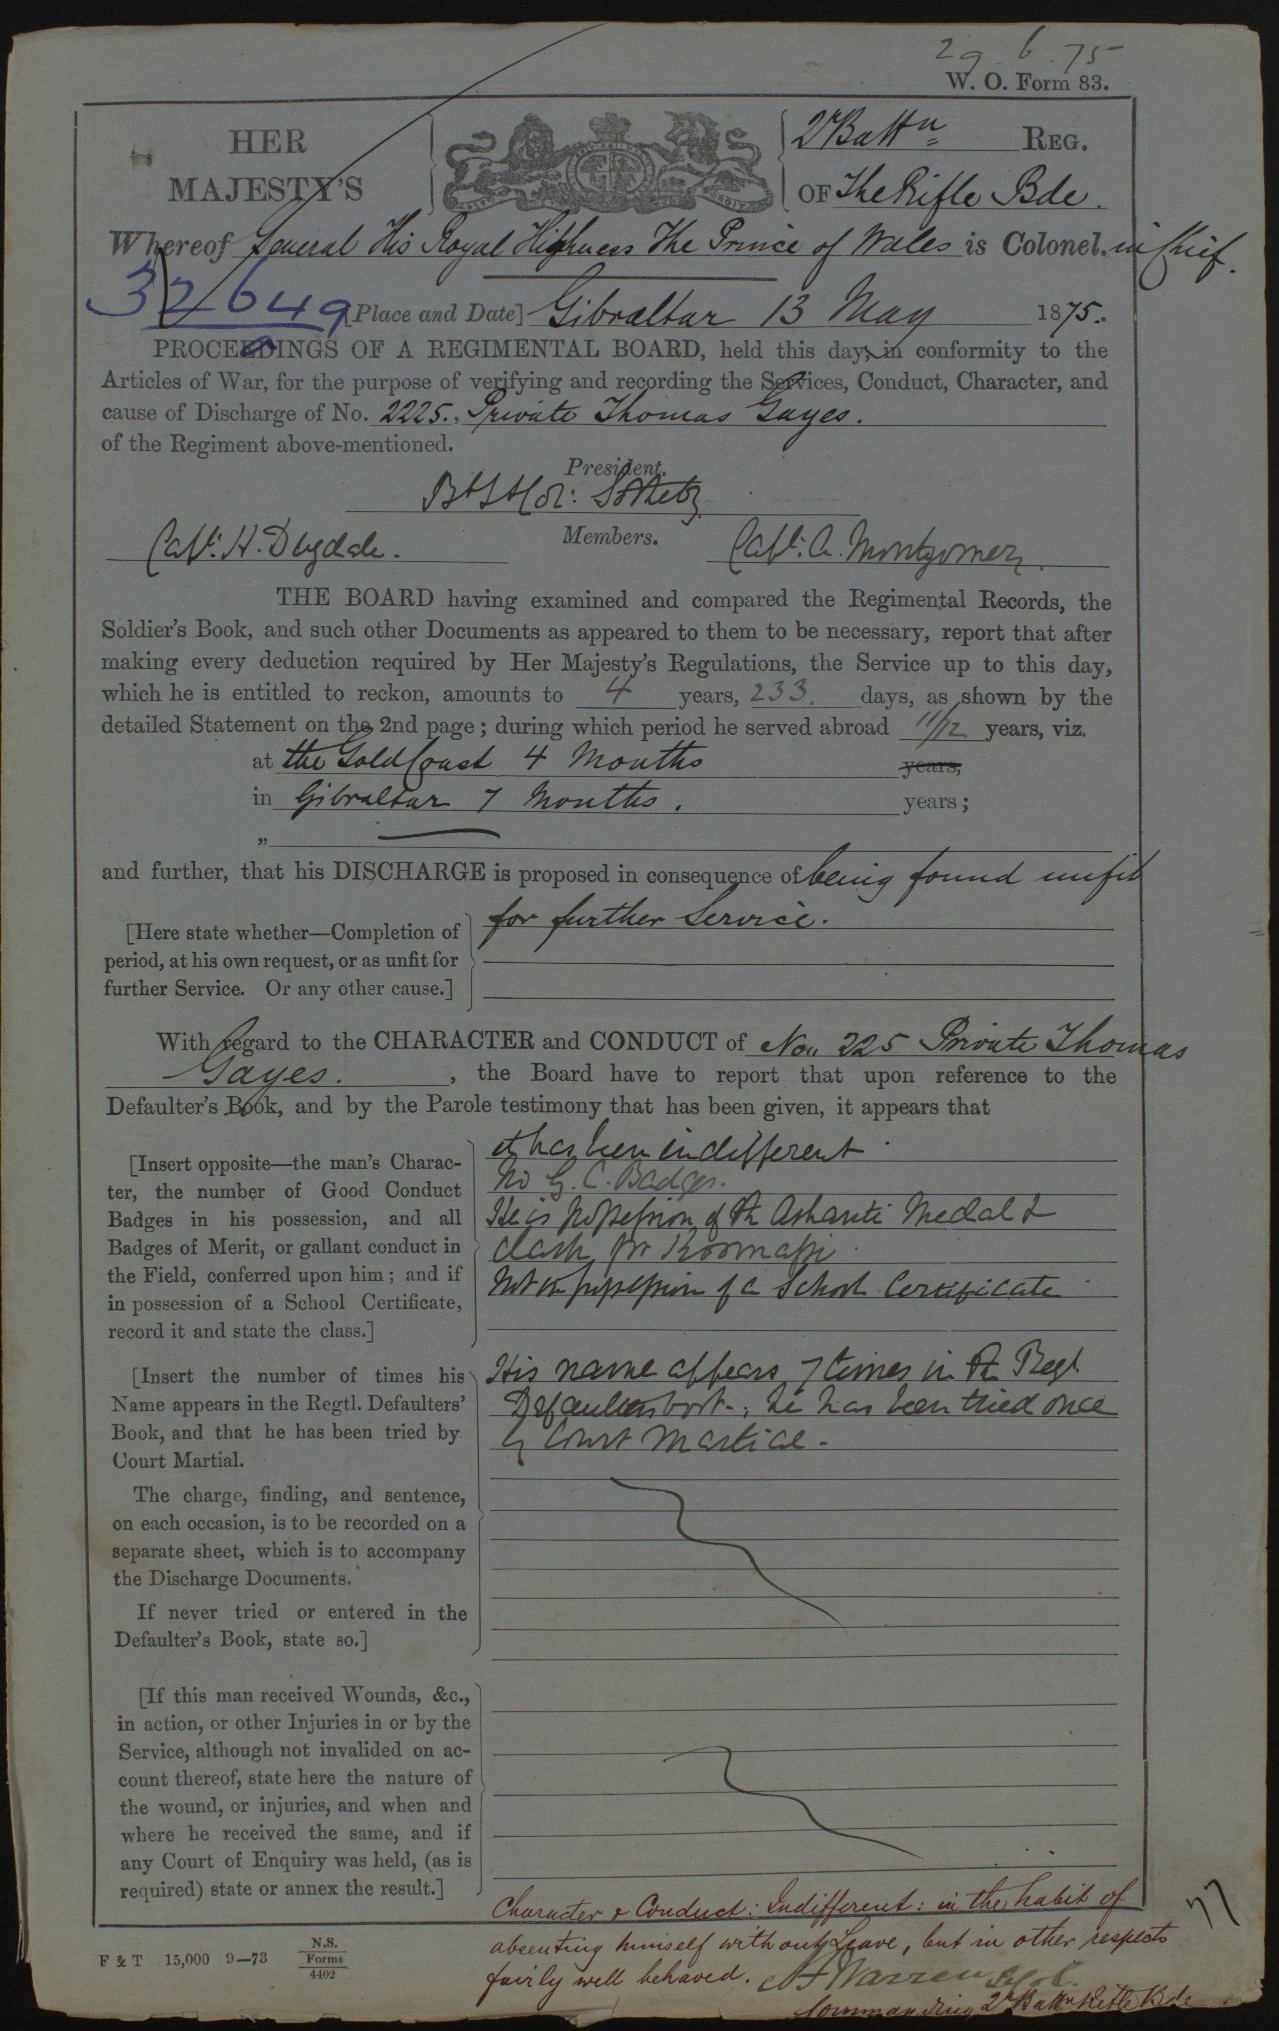 29. 6. 75
W. O. Form 83.
HER MAJESTY'S
2d Battn REG.
OF The Rifle Bde.
Whereof General His Royal Highness The Prince of Wales is Colonel. in Chief.
32649 [Place and Date] Gibraltar 13 May 1875.
PROCEEDINGS OF A REGIMENTAL BOARD, held this day, in conformity to the
Articles of War, for the purpose of verifying and recording the Services, Conduct, Character, and
cause of Discharge of No. 2225., Private Thomas Gayes.
of the Regiment above-mentioned.
President.
Bt Lt Col:
Members.
Capt: H. Dugdale. Capt: A. Montgomery.
THE BOARD having examined and compared the Regimental Records, the
Soldier's Book, and such other Documents as appeared to them to be necessary, report that after
making every deduction required by Her Majesty's Regulations, the Service up to this day,
which he is entitled to reckon, amounts to 4 years, 233. days, as shown by the
detailed Statement on the 2nd page; during which period he served abroad 11/12 years, viz.
at the Gold Coast 4 Months years,
in Gibraltar 7 Months. years;
„
and further, that his DISCHARGE is proposed in consequence of being found unfit
for further Service.
[Here state whether—Completion of
period, at his own request, or as unfit for
further Service. Or any other cause.]
With regard to the CHARACTER and CONDUCT of No. 225 Private Thomas
Gayes. , the Board have to report that upon reference to the
Defaulter's Book, and by the Parole testimony that has been given, it appears that
[Insert opposite—the man's Charac-
ter, the number of Good Conduct
Badges in his possession, and all
Badges of Merit, or gallant conduct in
the Field, conferred upon him; and if
in possession of a School Certificate,
record it and state the class.]
it has been indifferent
No G. C. Badges.
He is possession of the Ashanti Medal &
clasp for Koomassi
Not in possession of a School Certificate
[Insert the number of times his
Name appears in the Regtl. Defaulters'
Book, and that he has been tried by
Court Martial.
The charge, finding, and sentence,
on each occasion, is to be recorded on a
separate sheet, which is to accompany
the Discharge Documents.
If never tried or entered in the
Defaulter's Book, state so.]
His name appears 7 times in the Regt
Defaulters book, he has been tried once
by Court Martial -
[If this man received Wounds, &c.,
in action, or other Injuries in or by the
Service, although not invalided on ac-
count thereof, state here the nature of
the wound, or injuries, and when and
where he received the same, and if
any Court of Enquiry was held, (as is
required) state or annex the result.]
Character & Conduct: Indifferent: in the habit of
absenting himself without Leave, but in other respects
fairly well behaved. Warren Lt Col.
Commanding 2d Battn Rifle Bde
77
F & T 15,000 9—73 N.S. Forms 4402